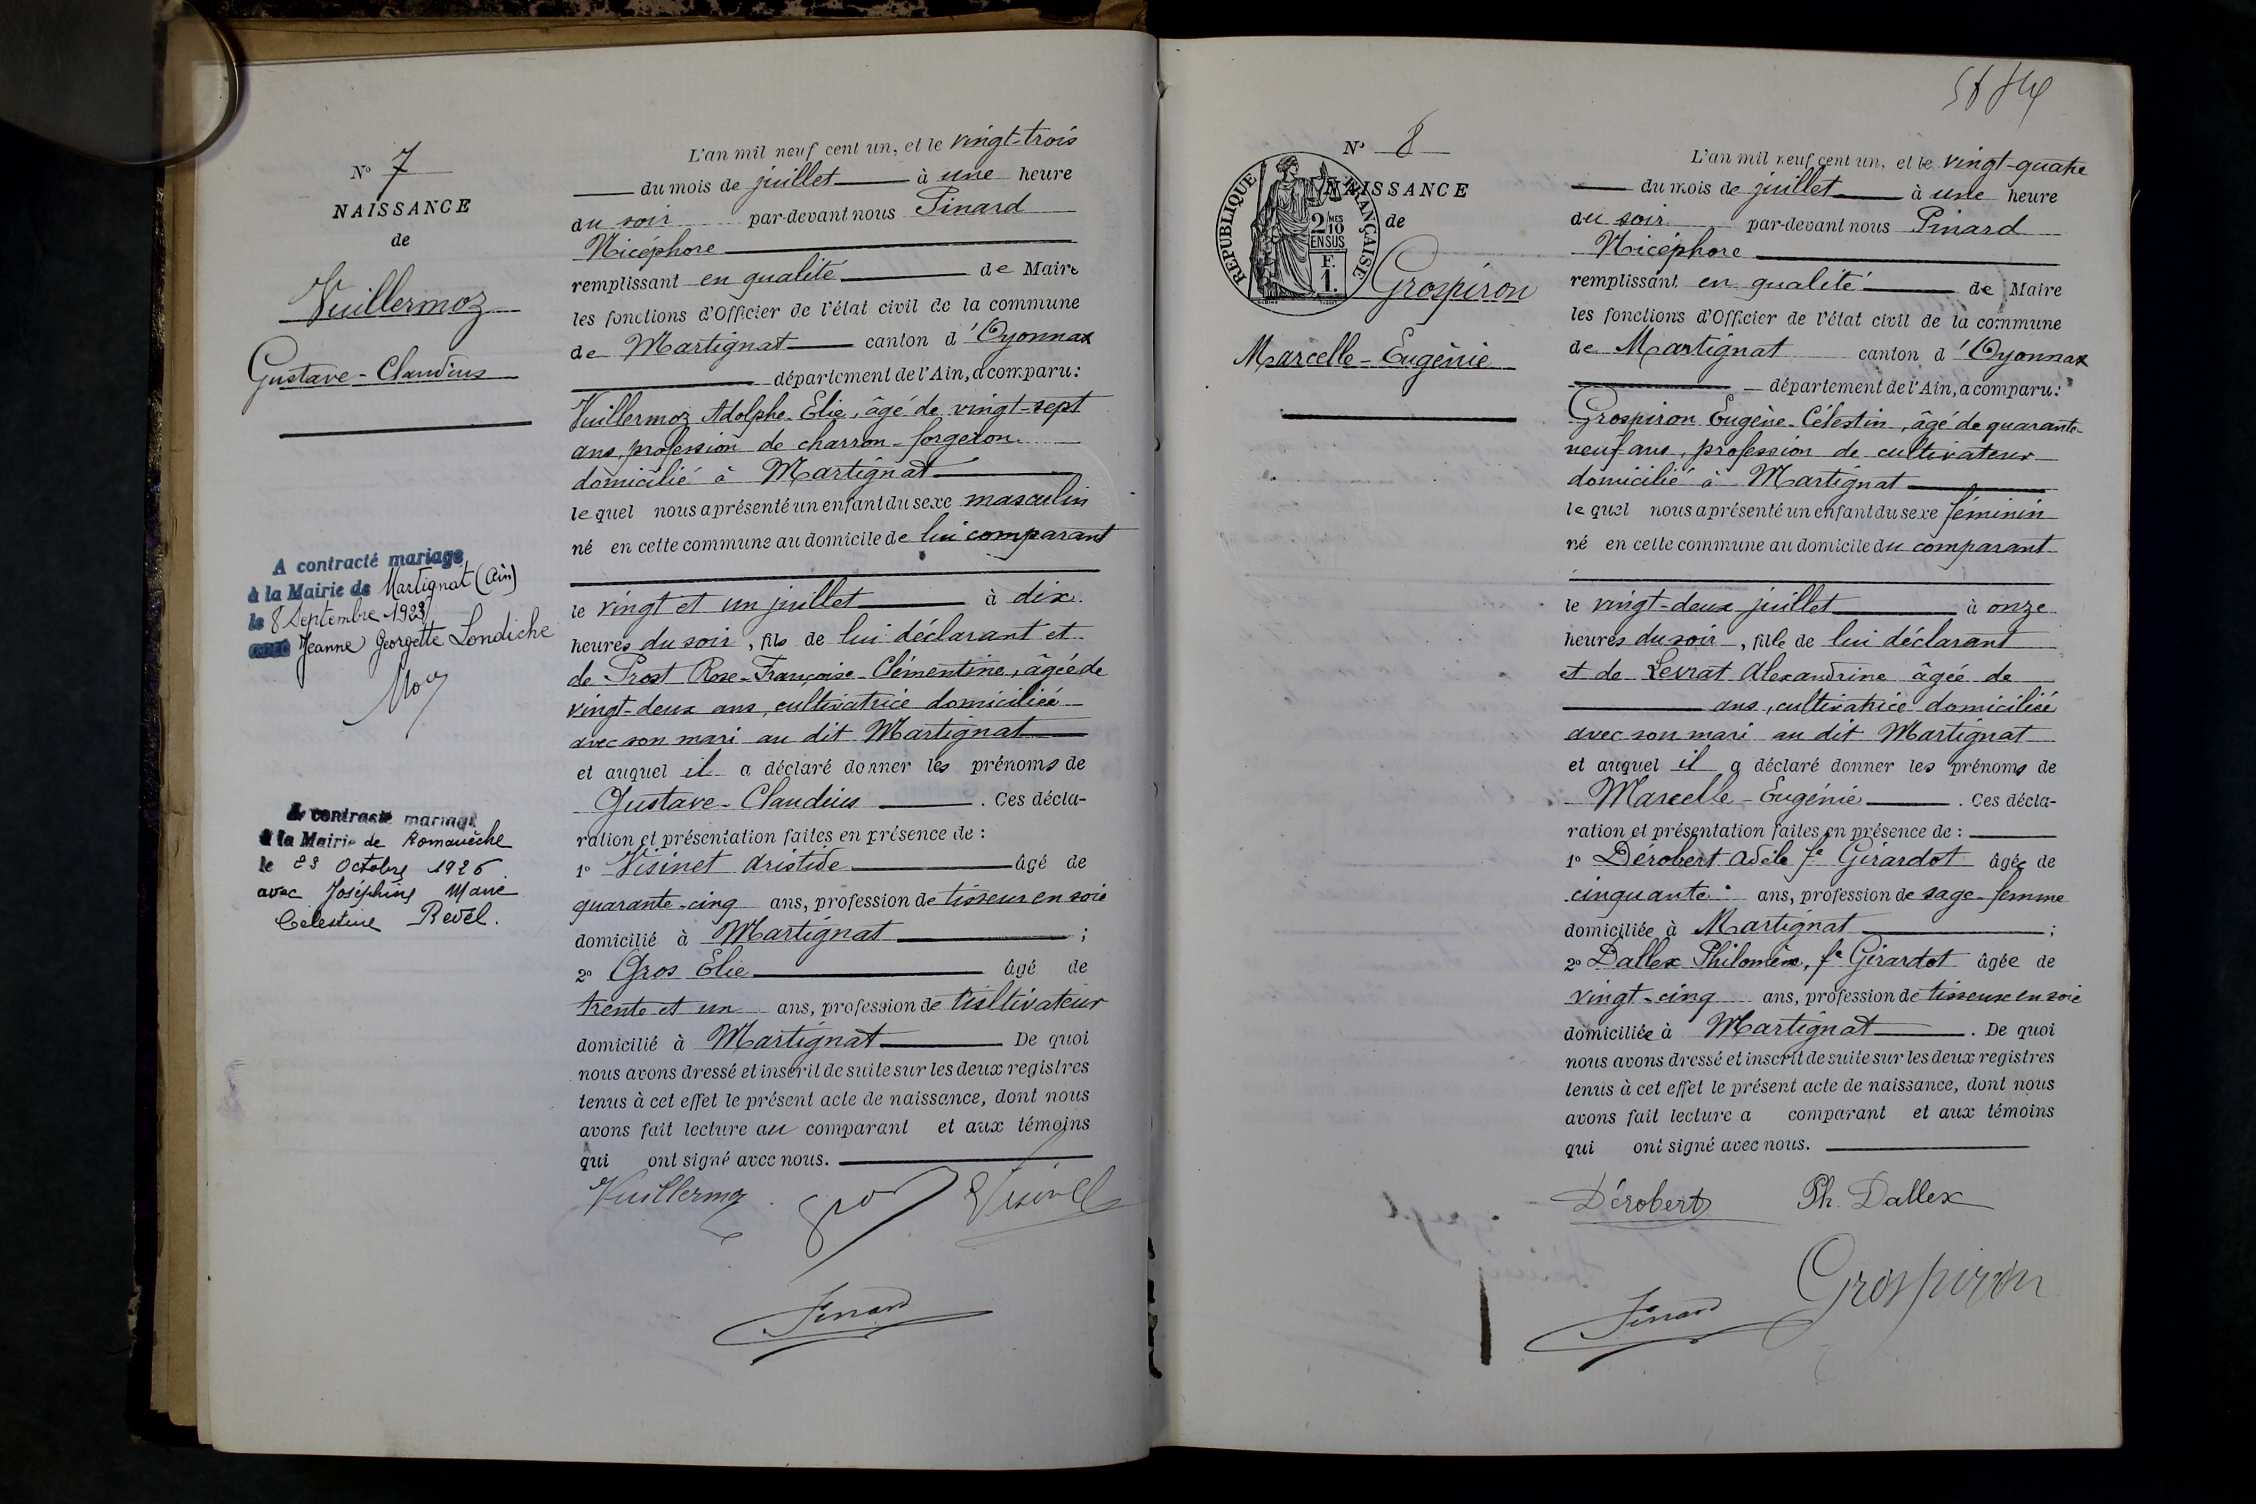 N° 7
NAISSANCE
de
Vuillermoz
Gustave-Claudius
A contracté mariage
à la Mairie de Martignat (Ain)
le 8 Septembre 1923
avec Jeanne Georgette Londiche
A contracté mariage
à la Mairie de Romanèche
le 23 Octobre 1926
avec Joséphine Marie
Celestine Revel.
L'an mil neuf cent un, et le vingt-trois
du mois de juillet à une heure
du soir par-devant nous Pinard
Nicéphore
remplissant en qualité de Maire
les fonctions d'Officier de l'état civil de la commune
de Martignat canton d'Oyonnax
département de l'Ain, a comparu:
Vuillermoz Adolphe-Elie, âgé de vingt-sept
ans, profession de charron-forgeron
domicilié à Martignat
lequel nous a présenté un enfant du sexe masculin
né en cette commune au domicile de lui comparant
le vingt et un juillet à dix
heures du soir, fils de lui déclarant et
de Prost Rose-Françoise-Clémentine, âgée de
vingt-deux ans, cultivatrice domiciliée
avec son mari au dit Martignat
et auquel il a déclaré donner les prénoms de
Gustave-Claudius. Ces décla-
ration et présentation faites en présence de :
1° Visinet Aristide âgé de
quarante-cinq ans, profession de tisseur en soie
domicilié à Martignat ;
2° Gros Elie âgé de
trente et un ans, profession de cultivateur
domicilié à Martignat De quoi
nous avons dressé et inscrit de suite sur les deux registres
tenus à cet effet le présent acte de naissance, dont nous
avons fait lecture au comparant et aux témoins
qui ont signé avec nous.
Vuillermoz Gros Visinet
Pinard
N° 8
RÉPUBLIQUE FRANÇAISE
2/10 MES
EN SUS
F. 1.
NAISSANCE
de
Grospiron
Marcelle-Eugénie
L'an mil neuf cent un, et le vingt-quatre
du mois de juillet à une heure
du soir par-devant nous Pinard
Nicéphore
remplissant en qualité de Maire
les fonctions d'Officier de l'état civil de la commune
de Martignat canton d'Oyonnax
département de l'Ain, a comparu:
Grospiron Eugène-Célestin, âgé de quarante-
neuf ans, profession de cultivateur
domicilié à Martignat
lequel nous a présenté un enfant du sexe féminin
né en cette commune au domicile du comparant
le vingt-deux juillet à onze
heures du soir, fille de lui déclarant
et de Levrat Alexandrine âgée de
ans, cultivatrice domiciliée
avec son mari au dit Martignat
et auquel il a déclaré donner les prénoms de
Marcelle-Eugénie. Ces décla-
ration et présentation faites en présence de :
1° Dérobert Adèle fe Girardot âgée de
cinquante ans, profession de sage-femme
domiciliée à Martignat ;
2° Dallex Philomène, fe Girardot âgée de
vingt-cinq ans, profession de tisseuse en soie
domiciliée à Martignat. De quoi
nous avons dressé et inscrit de suite sur les deux registres
tenus à cet effet le présent acte de naissance, dont nous
avons fait lecture a comparant et aux témoins
qui ont signé avec nous.
Dérobert Ph. Dallex
Pinard Grospiron